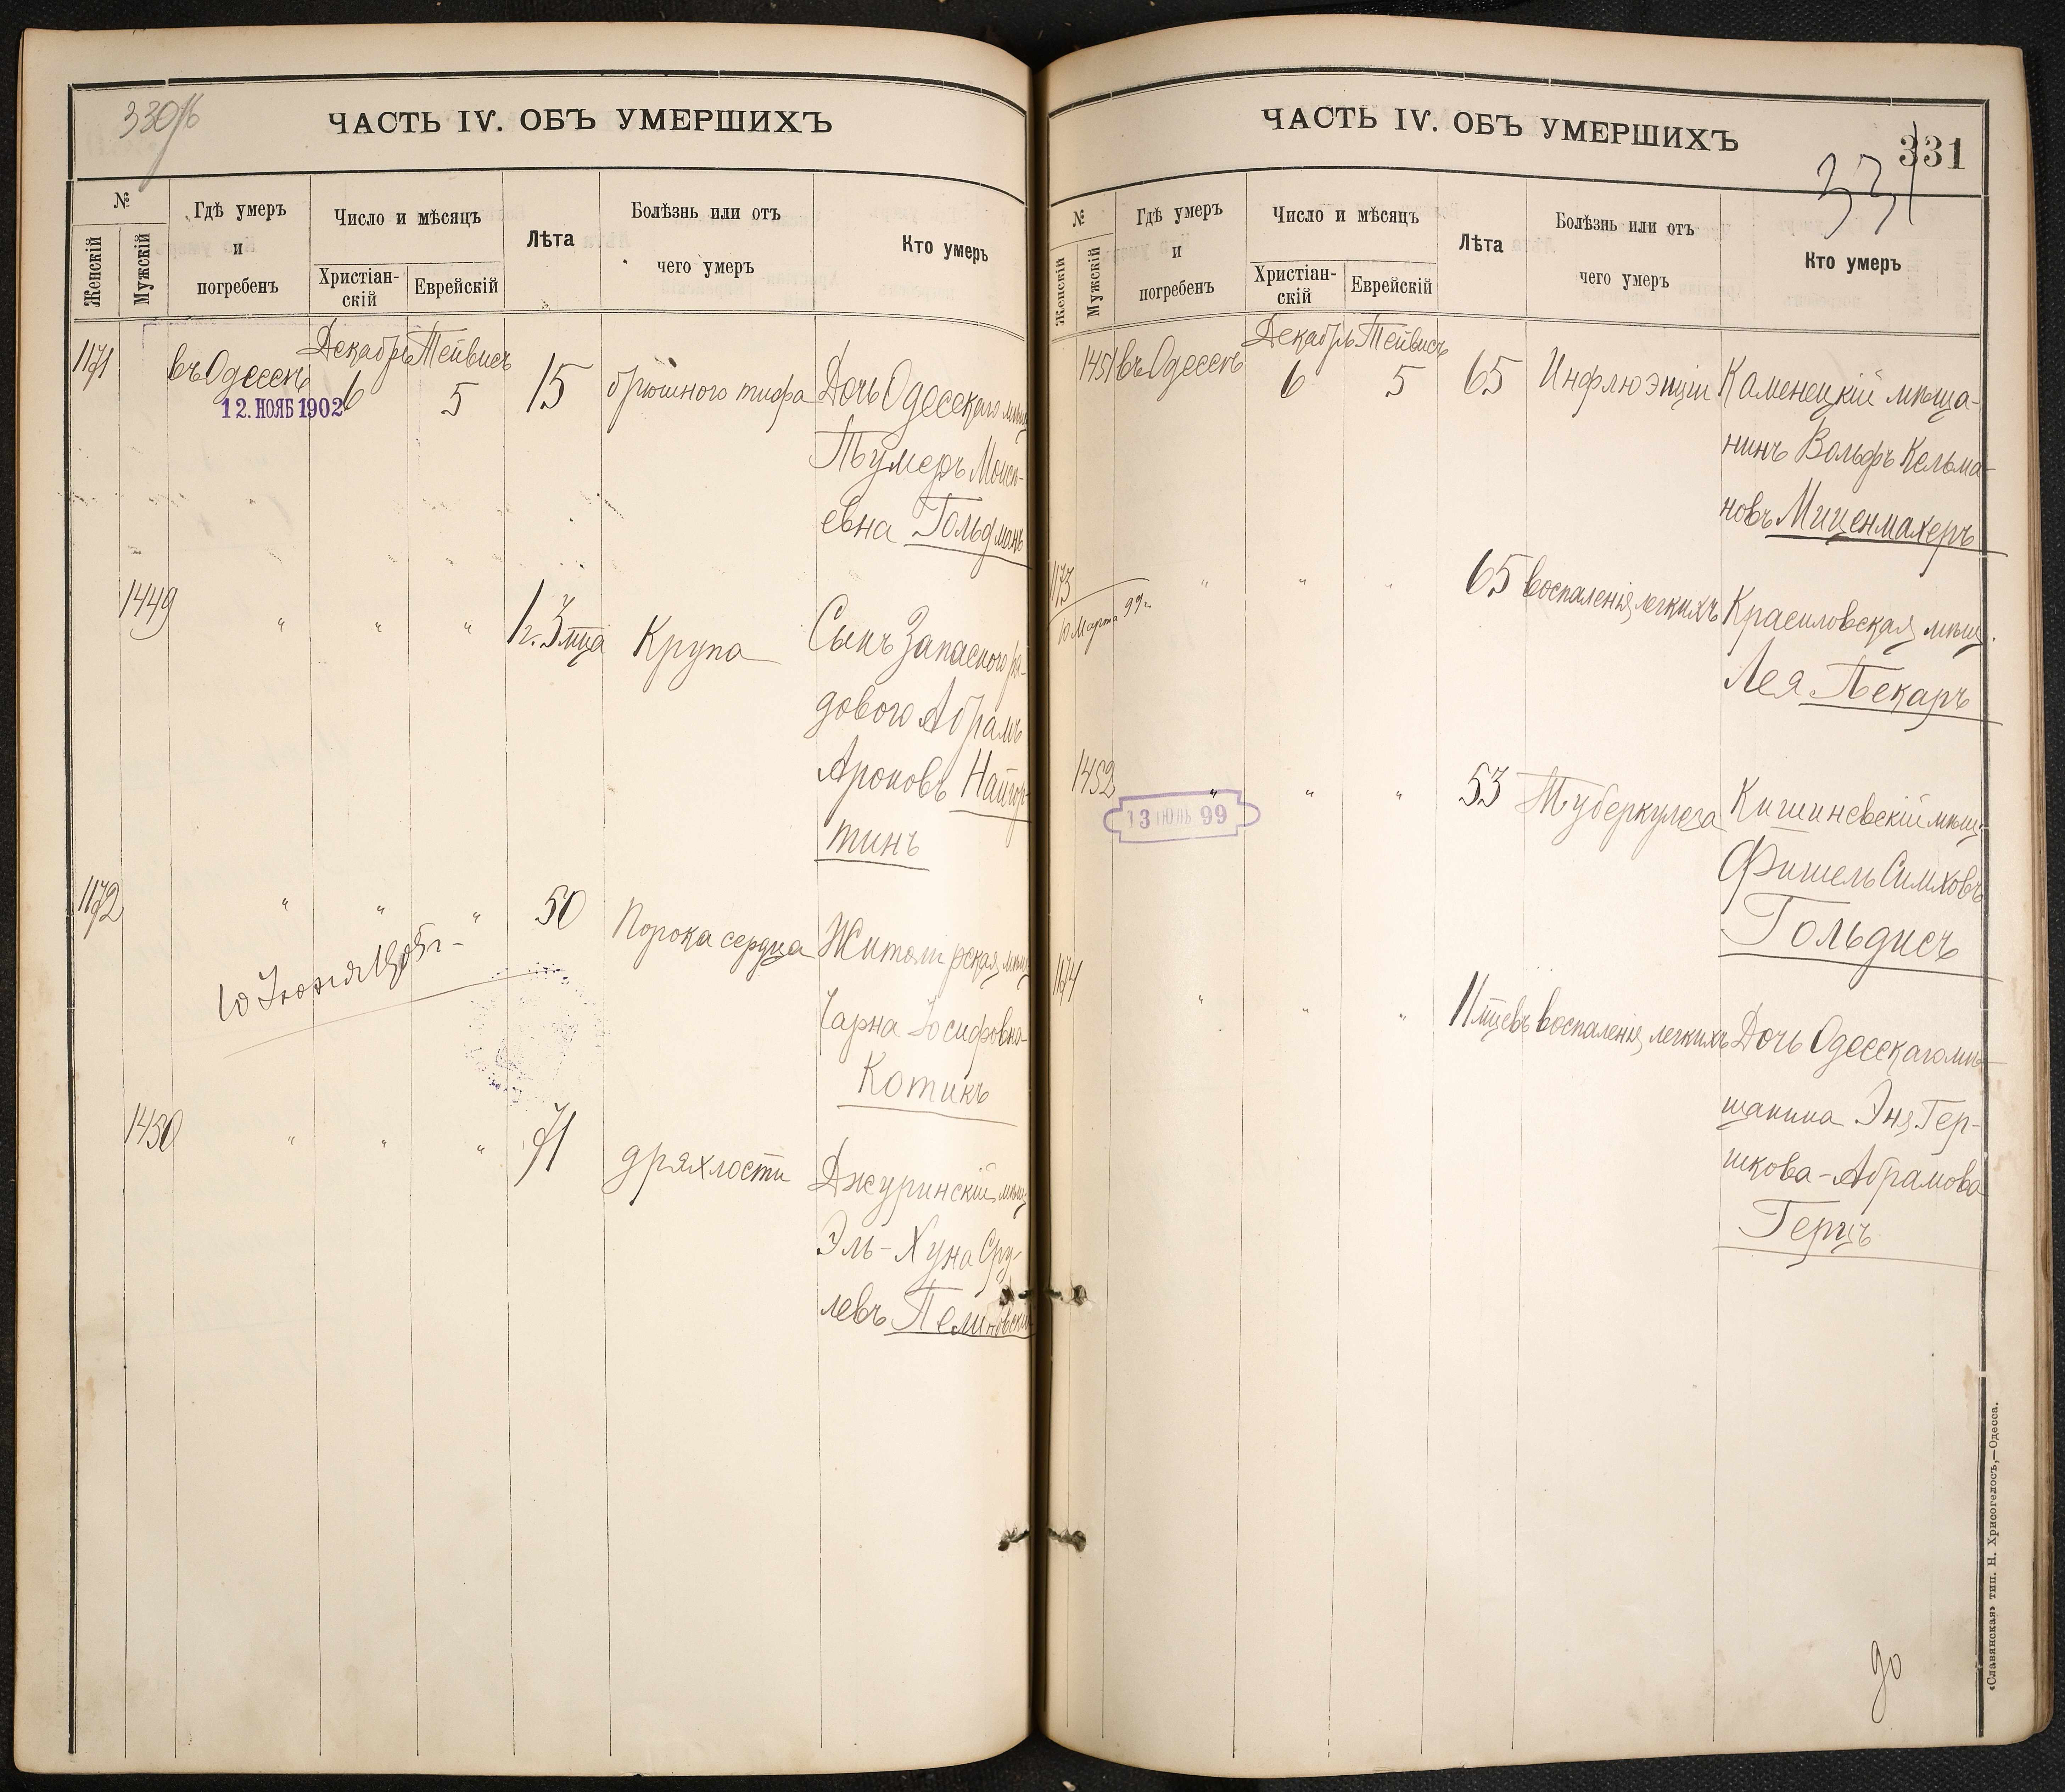 330/б
ЧАСТЬ IV. ОБЪ УМЕРШИХЪ
№
Женскій
Мужскій
Гдѣ умеръ
и
погребенъ
Число и мѣсяцъ
Христіан-
скій
Еврейскій
Лѣта
Болѣзнь или отъ
чего умеръ
Кто умеръ
1171 въ Одессѣ Декабрь 6 Тейвисъ 5 15 брюшного тифа Дочь Одесскаго мѣщ
12. НОЯБ 1902
Моисе-
евна Гольдманъ
1449 " " " 1 г. 3 мца Крупа Сынъ Запасного ря-
дового Абрамъ
Ароновъ
тинъ
1172 " " " 50 Порока сердца Житомірская мѣщ
10 Іюня 1905 г.
Чарна Іосифовна
Котикъ
1450 " " " 71 дряхлости Джуринскій мѣщ
Эль-Хуна Сру-
левъ
ЧАСТЬ IV. ОБЪ УМЕРШИХЪ
331
331
№
Женскій
Мужскій
Гдѣ умеръ
и
погребенъ
Число и мѣсяцъ
Христіан-
скій
Еврейскій
Лѣта
Болѣзнь или отъ
чего умеръ
Кто умеръ
1451 въ Одессѣ Декабрь 6 Тейвисъ 5 65 Инфлюэнціи Каменецкій мѣща-
нинъ Вольфъ Кельма-
новъ Миценмахеръ
1173 " " " 65 воспаленія легкихъ Красиловская мѣщ.
10 Марта 99 г.
Лея Пекаръ
1452 " " " 53 Туберкулеза Кишиневскій мѣщ.
13 ІЮЛЬ 99
Фишель Симховъ
Гольдисъ
1174 " " " 11 мцевъ воспаленія легкихъ Дочь Одесскаго мѣ-
щанина Эня Гер-
шкова-Абрамова
Герцъ
до
«Славянская» тип. Н. Хрисогелосъ,—Одесса.